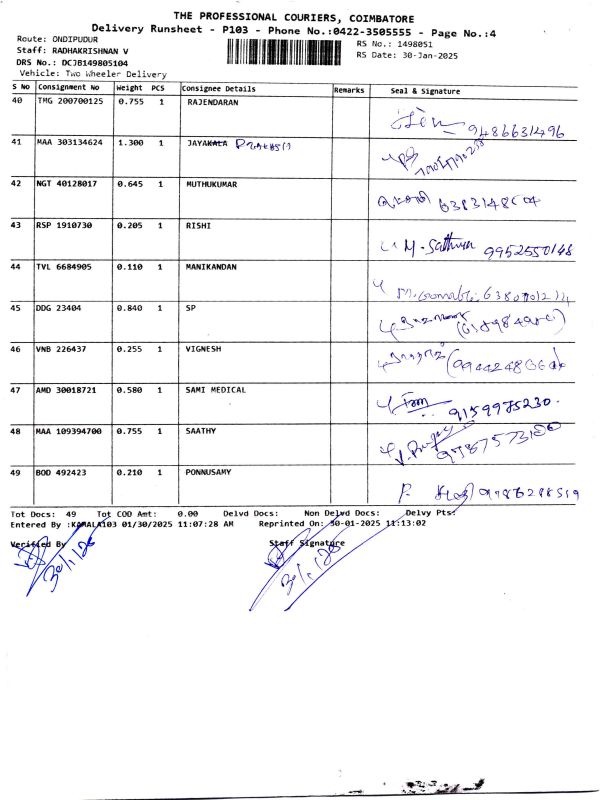 THE PROFESSIONAL COURIERS, COIMBATORE
Delivery Runsheet - P103 - Phone No.:0422-3505555 - Page No.:4
Route: ONDIPUDUR
RS No.: 1498051
Staff: RADHAKRISHNAN V
RS Date: 30-Jan-2025
DRS No.: DCJB149805104
Vehicle: Two Wheeler Delivery
S No Consignment No Weight PCS Consignee Details Remarks Seal & Signature
40 TMG 200700125 0.755 1 RAJENDARAN 9486631496
41 MAA 303134624 1.300 1 JAYAKALA
42 NGT 40128017 0.645 1 MUTHUKUMAR
43 RSP 1910730 0.205 1 RISHI M. 9952550148
44 TVL 6684905 0.110 1 MANIKANDAN
45 DDG 23404 0.840 1 SP
46 VNB 226437 0.255 1 VIGNESH
47 AMD 30018721 0.580 1 SAMI MEDICAL 9159975230.
48 MAA 109394700 0.755 1 SAATHY
49 BOD 492423 0.210 1 PONNUSAMY
Tot Docs: 49 Tot COD Amt: 0.00 Delvd Docs: Non Delvd Docs: Delvy Pts:
Entered By :KAMALA103 01/30/2025 11:07:28 AM Reprinted On: 30-01-2025 11:13:02
Verified By Staff Signature
30/1/25 30/1/25